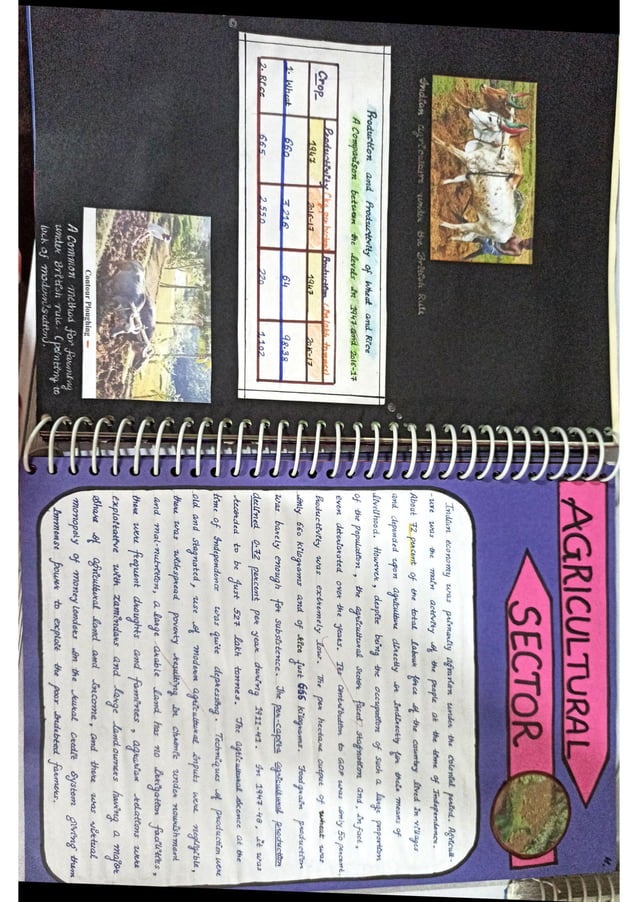 Indian agriculture under the British Rule
Production and Productivity of Wheat and Rice
A Comparison between the levels in 1947 and 2016-17
Crop Productivity (kg per hectare) Production (in lakh tonnes)
1947 2016-17 1947 2016-17
1. Wheat 660 3,216 64 98.38
2. Rice 665 2,550 220 1,102
Contour Ploughing
A Common method for farming
under British rule. (pointing to
lack of modernisation).
AGRICULTURAL
SECTOR
Indian economy was primarily agrarian under the colonial period. Agricult-
-ure was the main activity of the people at the time of Independence.
About 72 percent of the total labour force of the country lived in villages
and depended upon agriculture directly or indirectly for their means of
livelihood. However, despite being the occupation of such a large proportion
of the population, the agricultural sector faced stagnation and, in fact,
even deteriorated over the years. Its contribution to GDP was only 50 percent.
Productivity was extremely low. The per hectare output of wheat was
only 660 kilograms and of rice just 665 kilograms. Foodgrain production
was barely enough for subsistence. The per-capita agricultural production
declined 0.72 percent per year during 1911-41. In 1947-48, it was
recorded to be just 527 lakh tonnes. The agricultural scence at the
time of Independence was quite depressing. Techniques of production were
old and stagnated, use of modern agricultural inputs were negligible,
there was widespread poverty resulting in chronic under nourishment
and mal-nutrition, a large arable land has no irrigation facilities,
there were frequent draughts and famines, agrarian relations were
exploitative with zamindars and large landowners having a major
share of agricultural land and income, and there was virtual
monopoly of moneylenders in the rural credit system giving them
immense power to exploit the poor indebted farmers.